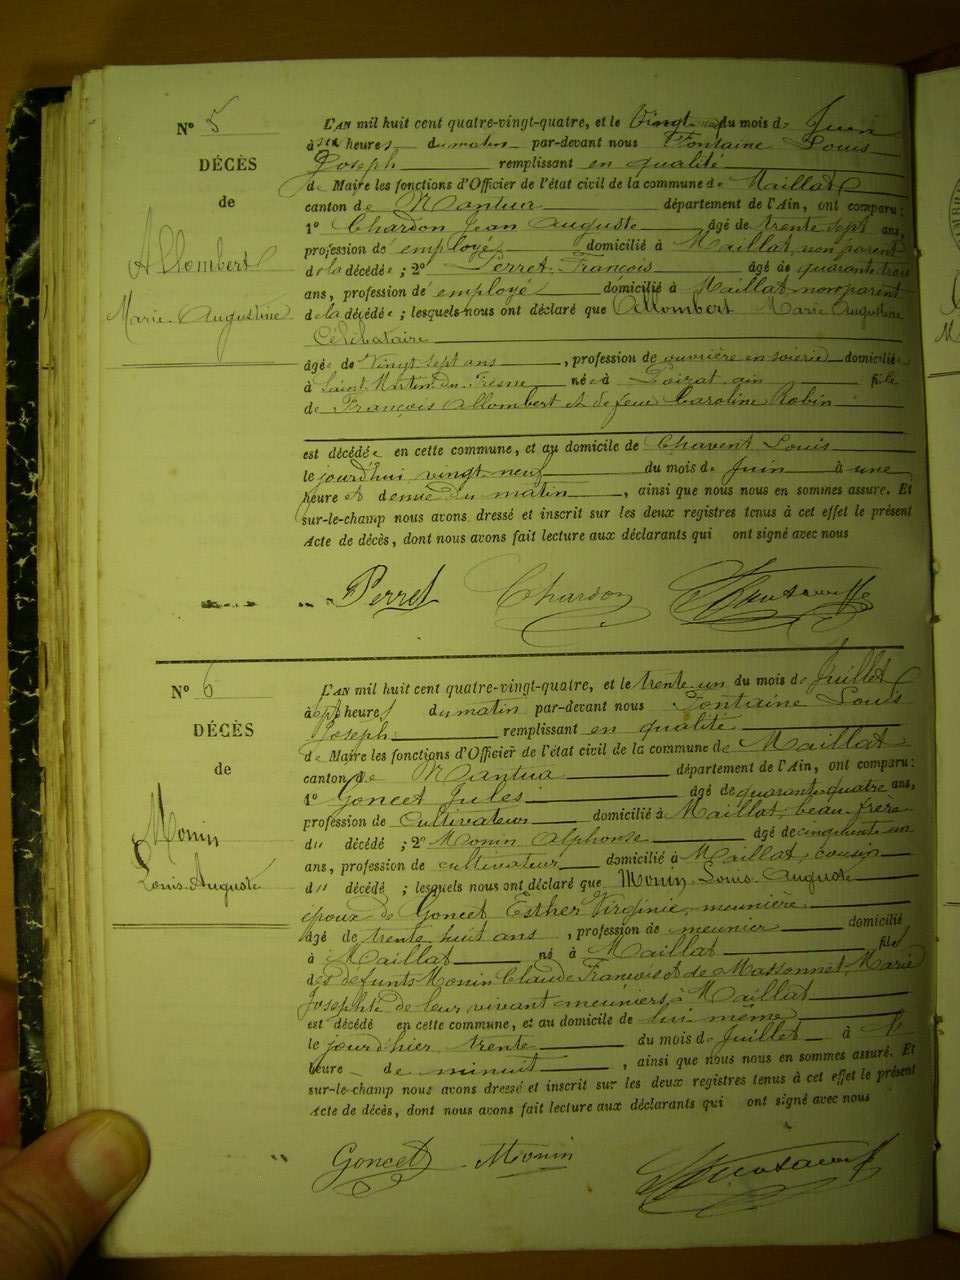 N° 5
DÉCÈS
de
Allombert
Marie Augustine
L'AN mil huit cent quatre-vingt-quatre, et le Vingt neuf du mois de Juin
à six heures du matin par-devant nous Fontaine Louis
Joseph remplissant en qualité
de Maire les fonctions d'Officier de l'état civil de la commune de Maillat
canton de Nantua département de l'Ain, ont comparu:
1° Chardon Jean Auguste âgé de trente sept ans,
profession de employé domicilié à Maillat, non parent
de la décédée; 2° Perret François âgé de quarante trois
ans, profession de employé domicilié à Maillat non parent
de la décédée; lesquels nous ont déclaré que Allombert Marie Augustine
Célibataire
âgée de Vingt sept ans, profession de ouvrière en soierie domiciliée
à Saint Martin du Fresne née à Poizat ain fille
de François Allombert et de feue Caroline Robin
est décédée en cette commune, et au domicile de Chavent Louis
le jourd'hui vingt neuf du mois de Juin à une
heure et demie du matin, ainsi que nous nous en sommes assuré. Et
sur-le-champ nous avons dressé et inscrit sur les deux registres tenus à cet effet le présent
Acte de décès, dont nous avons fait lecture aux déclarants qui ont signé avec nous
Perret Chardon
N° 6
DÉCÈS
de
Monin
Louis Auguste
L'AN mil huit cent quatre-vingt-quatre, et le trente un du mois de Juillet
à sept heures du matin par-devant nous Fontaine Louis
Joseph remplissant en qualité
de Maire les fonctions d'Officier de l'état civil de la commune de Maillat
canton de Nantua département de l'Ain, ont comparu:
1° Goncet Jules âgé de quarante quatre ans,
profession de Cultivateur domicilié à Maillat, beau frère
du décédé; 2° Monin Alphonse âgé de cinquante un
ans, profession de cultivateur domicilié à Maillat, cousin
du décédé; lesquels nous ont déclaré que Monin Louis Auguste
époux de Goncet Esther Virginie, meunière
âgé de trente huit ans, profession de meunier domicilié
à Maillat né à Maillat fils
des défunts Monin Claude François et de Massonnet Marie
Josephte de leur vivant meuniers à Maillat
est décédé en cette commune, et au domicile de lui même
le jourd'hier trente du mois de Juillet à l'
heure de minuit, ainsi que nous nous en sommes assuré. Et
sur-le-champ nous avons dressé et inscrit sur les deux registres tenus à cet effet le présent
Acte de décès, dont nous avons fait lecture aux déclarants qui ont signé avec nous
Goncet Monin